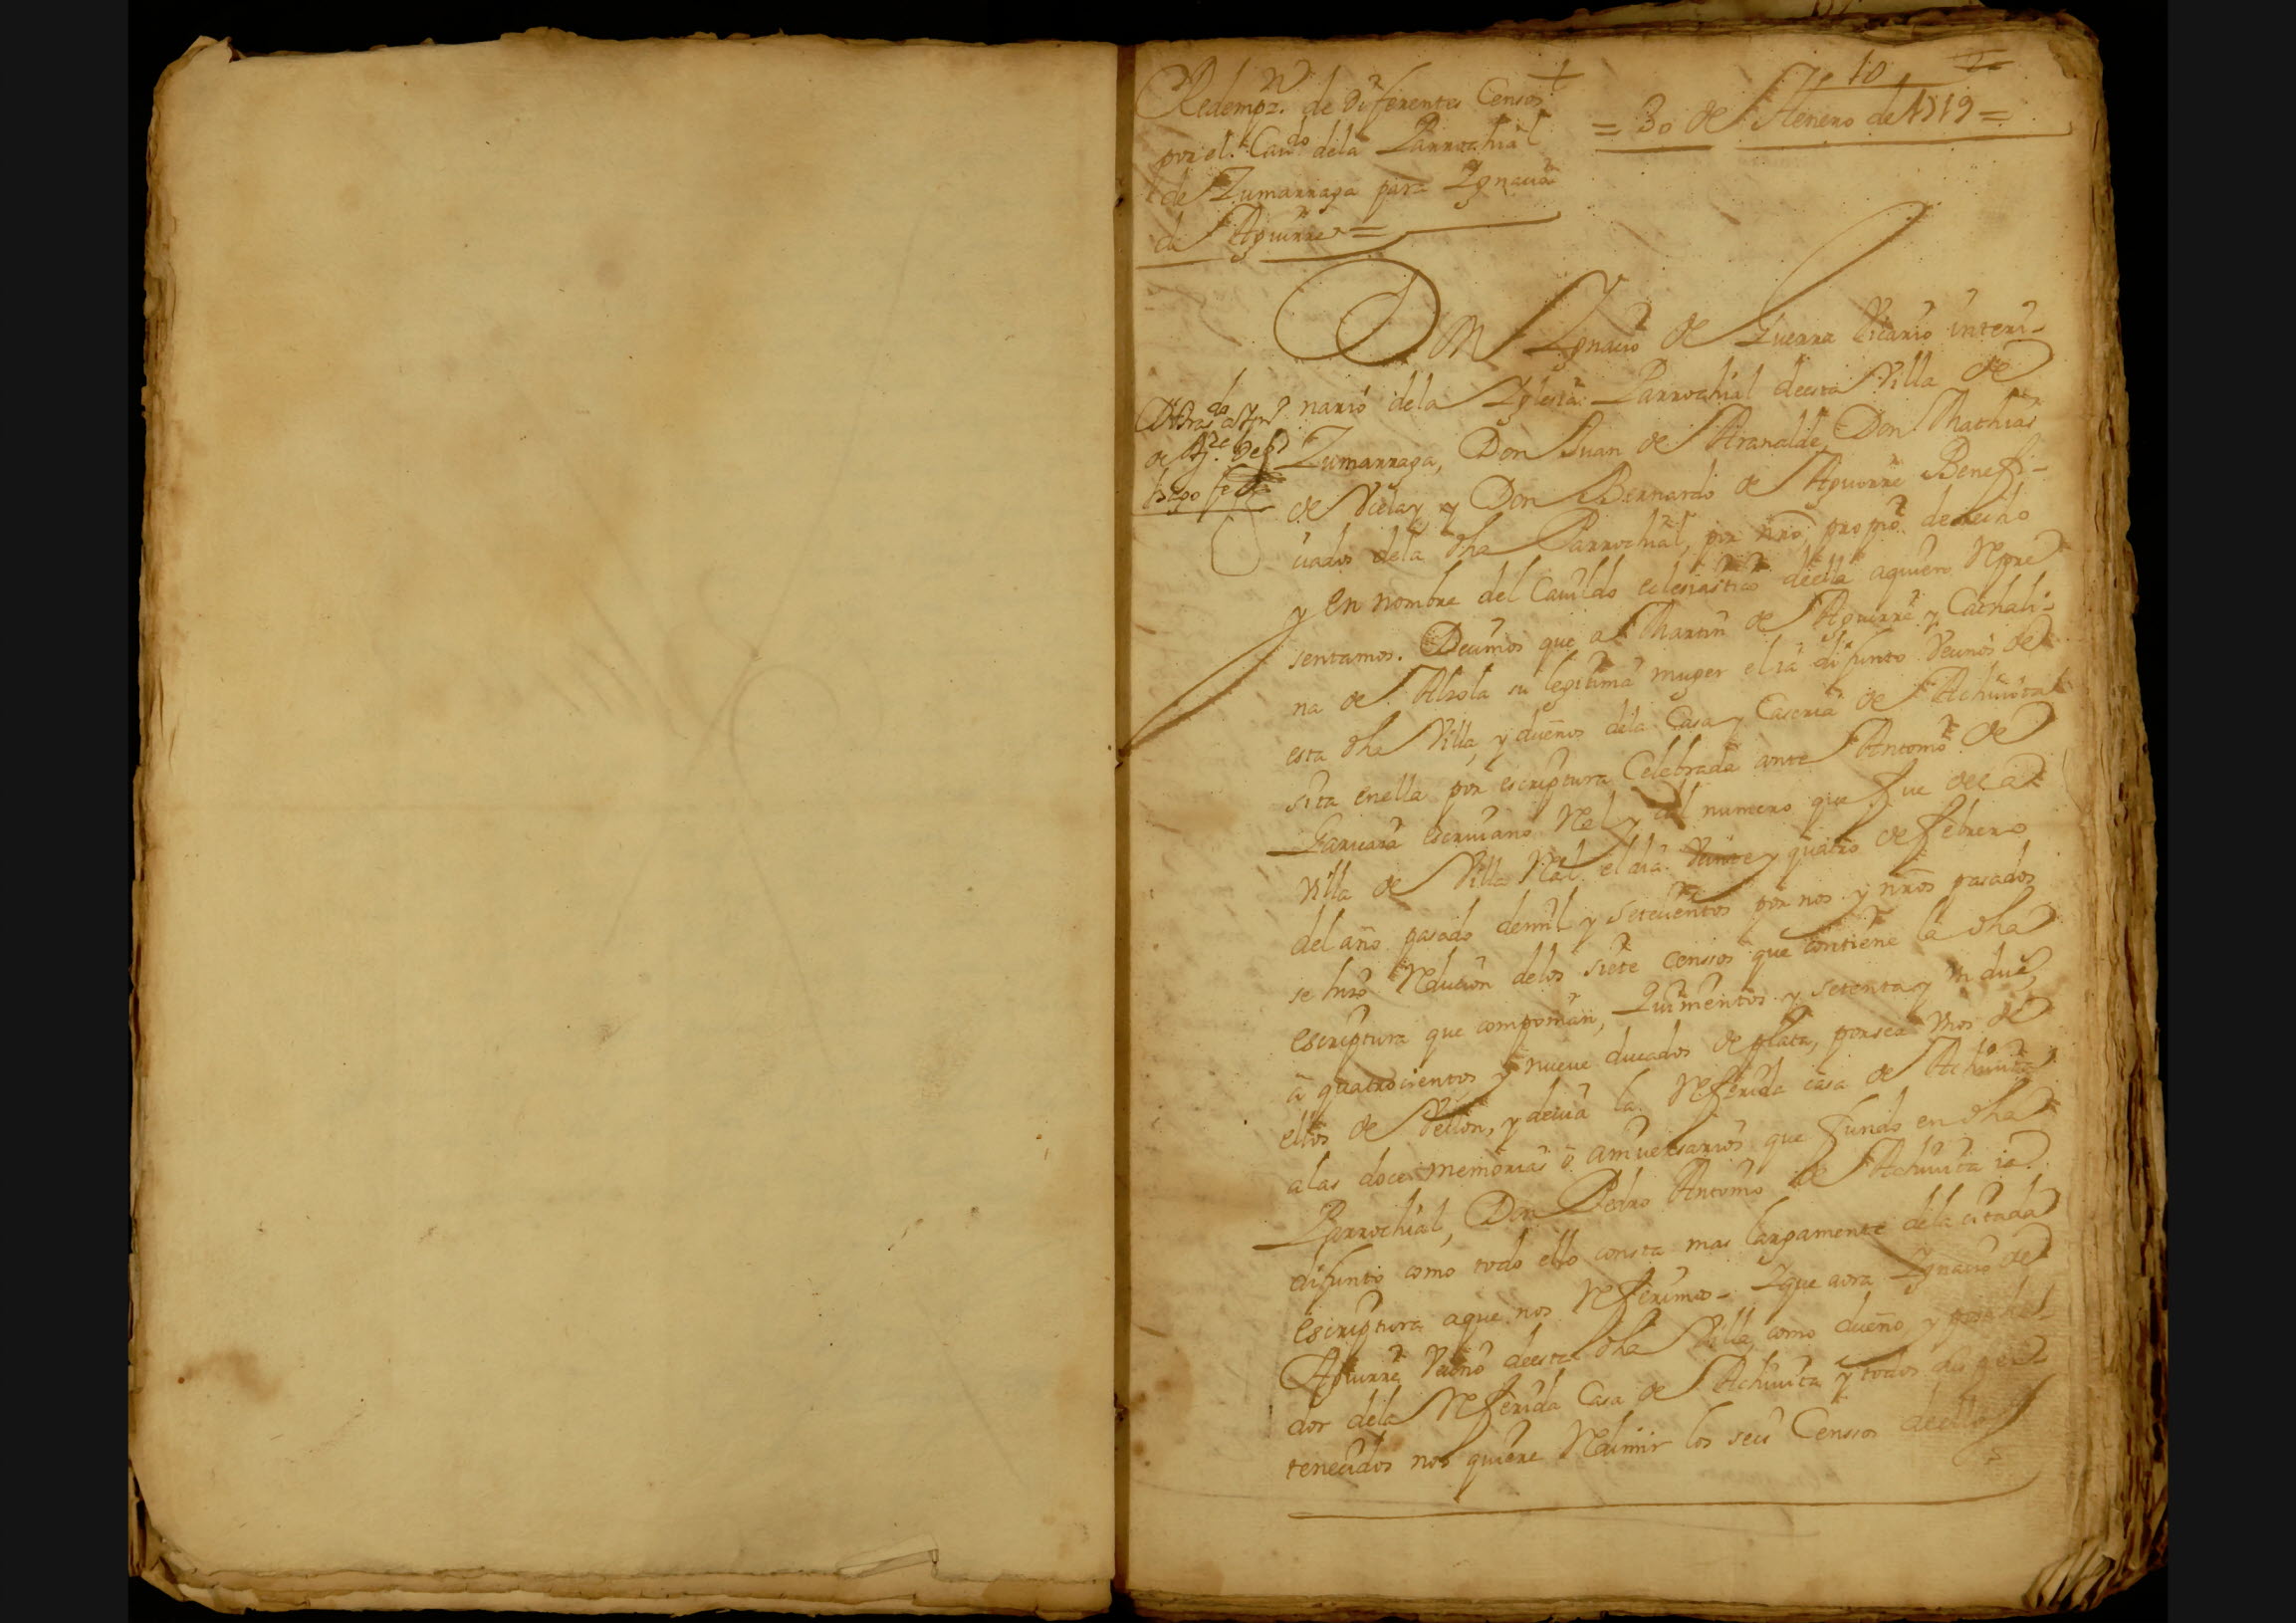 10
Redempz.on de diferentes Censos
por el Cau.do dela Parrochial
de Zumarraga para Ignacio
de Aguirre =
= 30 de Henero de 1719 =
Don Ignacio de Guerra Vicario interi-
nario dela Iglesia Parrochial deesta Villa de
Zumarraga, Don Juan de Aranalde, Don Mathias
de Vicelay y Don Bernardo de Aguirre Benefi-
ciados dela dha Parrochial, por nro propio derecho
y en nombre del Cauildo eclesiastico deella aquien Repre
sentamos. Decimos que a Martin de Aguirre y Cathali-
na de Alzola su legitima muger el ia difunto Vecinos de
esta dha Villa, y dueños dela Casa y Caseria de Achiuita
sita enella por escriptura Celebrada ante Antonio de
escriuano Rel y del numero que fue de la
Villa de Villa Real el dia Veinte y quatro de febrero
del año pasado demil y setecientos por nos y nros pasados
se hizo Reducion delos siete Censsos que contiene la dha
Escriptura que componian, Quinientos y setenta y un duc.s
à quatrocientos y nueue ducados de plata, porsea unos de
ellos de Vellon, y deuia la Referida casa de Achiuita
alas doce memorias ò aniuersarios que fundo en dha
Parrochial, Don Pedro Antonio de Achiuita ia
difunto como todo ello consta mas largamente dela citada
Escriptura aque nos Referimos - Ique aora Ignacio de
Aguirre Vecino deesta dha Villa, como dueño y posehe-
dor dela Referida Casa de Achiuita y todos sus per
tenecidos nos quiere Redimir los seis Censsos deellos
hago fe